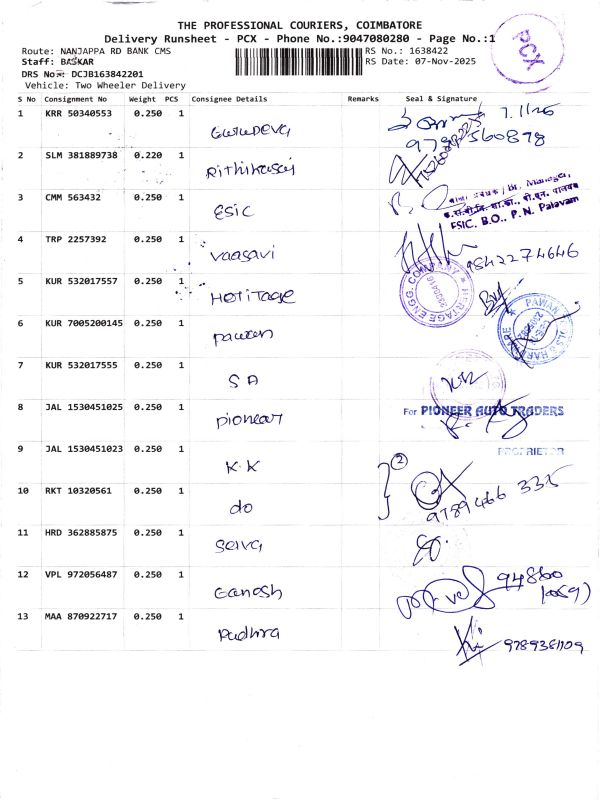 THE PROFESSIONAL COURIERS, COIMBATORE
Delivery Runsheet - PCX - Phone No.:9047080280 - Page No.:1
PCX
Route: NANJAPPA RD BANK CMS
RS No.: 1638422
Staff: BASKAR
RS Date: 07-Nov-2025
DRS No DCJB163842201
Vehicle: Two Wheeler Delivery
S No Consignment No Weight PCS Consignee Details Remarks Seal & Signature
1 KRR 50340553 0.250 1 Gurudeva 7.11.25
2 SLM 381889738 0.220 1 Rithikusai
3 CMM 563432 0.250 1 ESIC
/ Br. Manager,
ESIC, B.O., P. N. Palayam
4 TRP 2257392 0.250 1 Vaasavi 9842274646
5 KUR 532017557 0.250 1 Heritage
HERITAGE ENGG. COMPANY
6 KUR 7005200145 0.250 1 pawan
PAWAN
7 KUR 532017555 0.250 1 SA
8 JAL 1530451025 0.250 1 pioneer
For PIONEER AUTO TRADERS
PROPRIETOR
9 JAL 1530451023 0.250 1 K.K 2
10 RKT 10320561 0.250 1 do 9789466 335
11 HRD 362885875 0.250 1 Selva
12 VPL 972056487 0.250 1 Ganesh 94860
13 MAA 870922717 0.250 1 Rudhra 9789381109